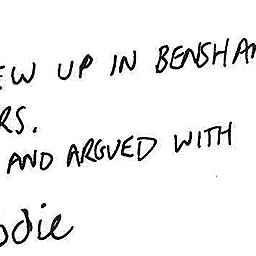 EW UP IN BENSHA
RS.
AND ARGUED WITH
odie